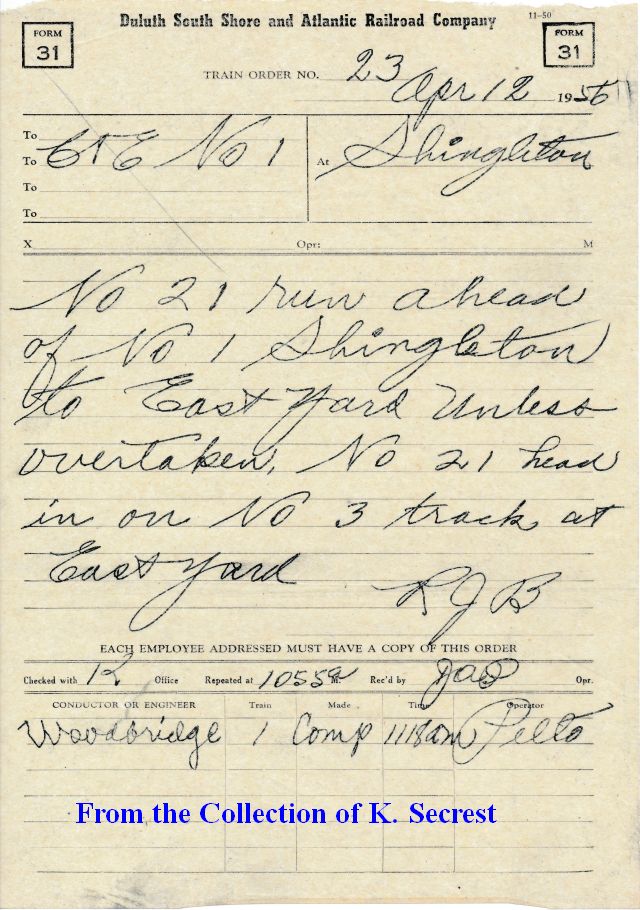 Duluth South Shore and Atlantic Railroad Company
11-50
FORM 31
FORM 31
TRAIN ORDER NO. 23
Apr 12 1956
To
To C&E No 1 At Shingleton
To
To
X Opr: M
No 21 run ahead
of No 1 Shingleton
to East Yard Unless
overtaken, No 21 head
in on No 3 track at
East Yard
R J B
EACH EMPLOYEE ADDRESSED MUST HAVE A COPY OF THIS ORDER
Checked with K Office Repeated at 1055a M. Rec'd by Opr.
CONDUCTOR OR ENGINEER Train Made Time Operator
Woodbridge 1 Comp 1118am Pelto
From the Collection of K. Secrest